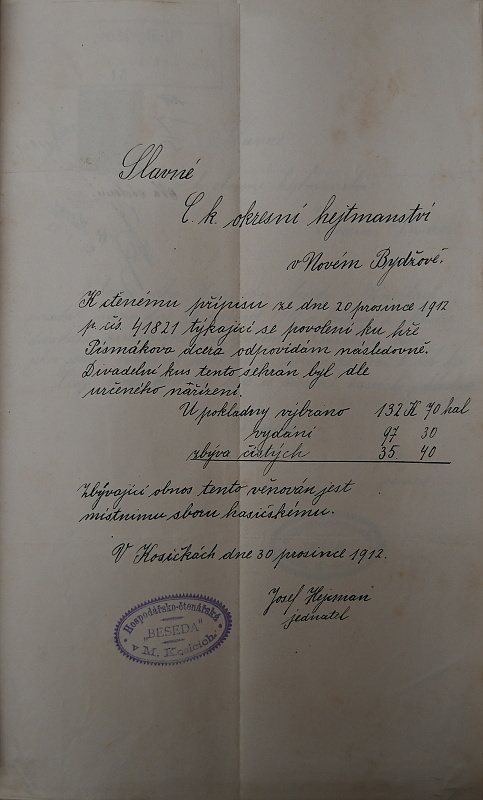 Slavné
C. k. okresní hejtmanství
v Novém Bydžově.
K čtenému přípisu ze dne 20 prosince 1912
p. čís. 41821 týkající se povolení ku hře
Písmákova dcera odpovídám následovně.
Divadelní kus tento sehrán byl dle
určeného nařízení.
U pokladny vybráno 132 K 70 hal
vydání 97 30
zbýva čistých 35. 40
Zbývající obnos tento věnován jest
místnímu sboru hasičskému.
V Kosičkách dne 30 prosince 1912.
Josef Hejman
jednatel
Hospodářsko-čtenářská
„BESEDA"
v M. Kosicích.